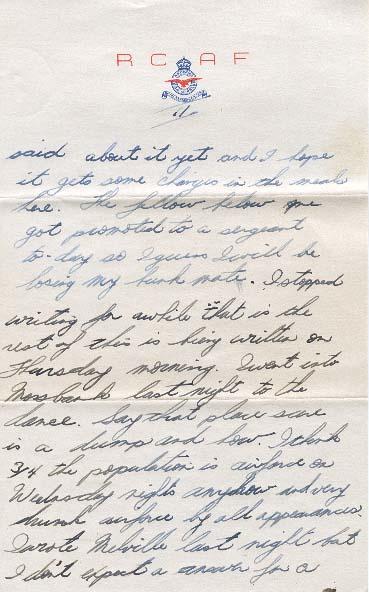 RCAF
11
said about it yet and I hope
it gets some changes in the meals
here. The fellow below me
got promoted to a sergeant
to-day so I guess I will be
losing my bunk mate. I stopped
writing for awhile that is the
rest of this is being written on
Thursday morning. I went into
Mossbank last night to the
dance. Say that place sure
is a dump and how. I think
3/4 the population is airforce on
Wednesday nights anyhow and very
drunk airforce by all appearances.
I wrote Melville last night but
I don't expect a answer for a